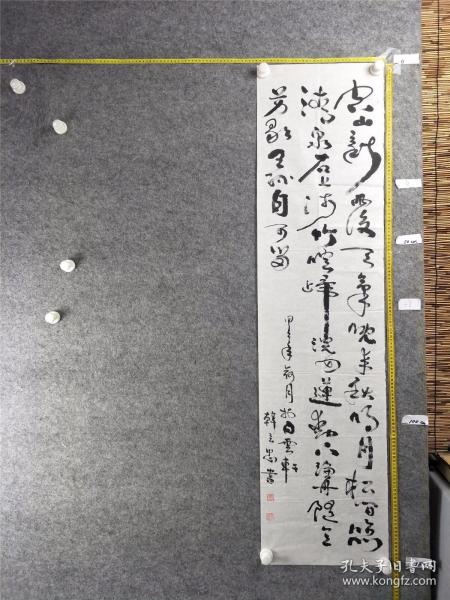 空山新雨後天氣晚來秋明月松間照
清泉石上流竹喧歸浣女蓮動下漁舟隨意
芳歇王孫自可留
年荷月於白雲軒
韓立忠書
0
50 cm
100 cm
孔夫子旧书网
www.kongfz.com